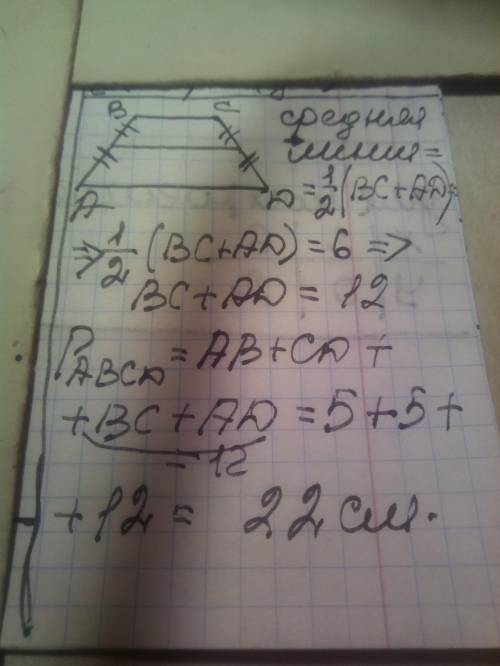 B C
A D
средняя
линия =
= 1/2 (BC+AD) =
=> 1/2 (BC+AD) = 6 =>
BC+AD = 12
P ABCD = AB+CD +
+BC+AD = 5+5+
= 12
+12 = 22 см.